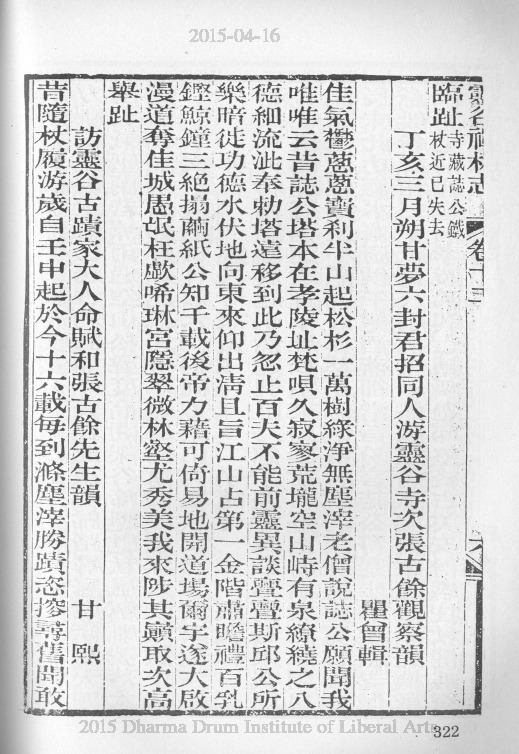 2015-04-16
靈谷禪林志 卷十三
臨趾寺藏誌公鐵
杖近已失去
丁亥三月朔甘夢六封君招同人游靈谷寺次張古餘觀察韻
瞿曾輯
佳氣鬱蔥蔥寶剎半山起松杉一萬樹綠淨無塵滓老僧說誌公願聞我
唯唯云昔誌公塔本在孝陵址梵唄久寂寥荒壠空山峙有泉繚繞之八
德細流泚奉勅塔遠移到此乃忽止百夫不能前靈異談亹亹斯邱公所
樂暗徙功德水伏地向東來仰出淸且旨江山占第一金階肅瞻禮百乳
鏗鯨鐘三絕搨繭紙公知千載後帝力藉可倚易地開道場爾宇遂大啟
漫道奪佳城愚氓枉歔唏琳宮隱翠微林壑尤秀美我來陟其巔取次高
舉趾
訪靈谷古蹟家大人命賦和張古餘先生韻 甘熙
昔隨杖履游歲自壬申起於今十六載每到滌塵滓勝蹟恣搜尋舊聞敢
2015 Dharma Drum Institute of Liberal Arts
322